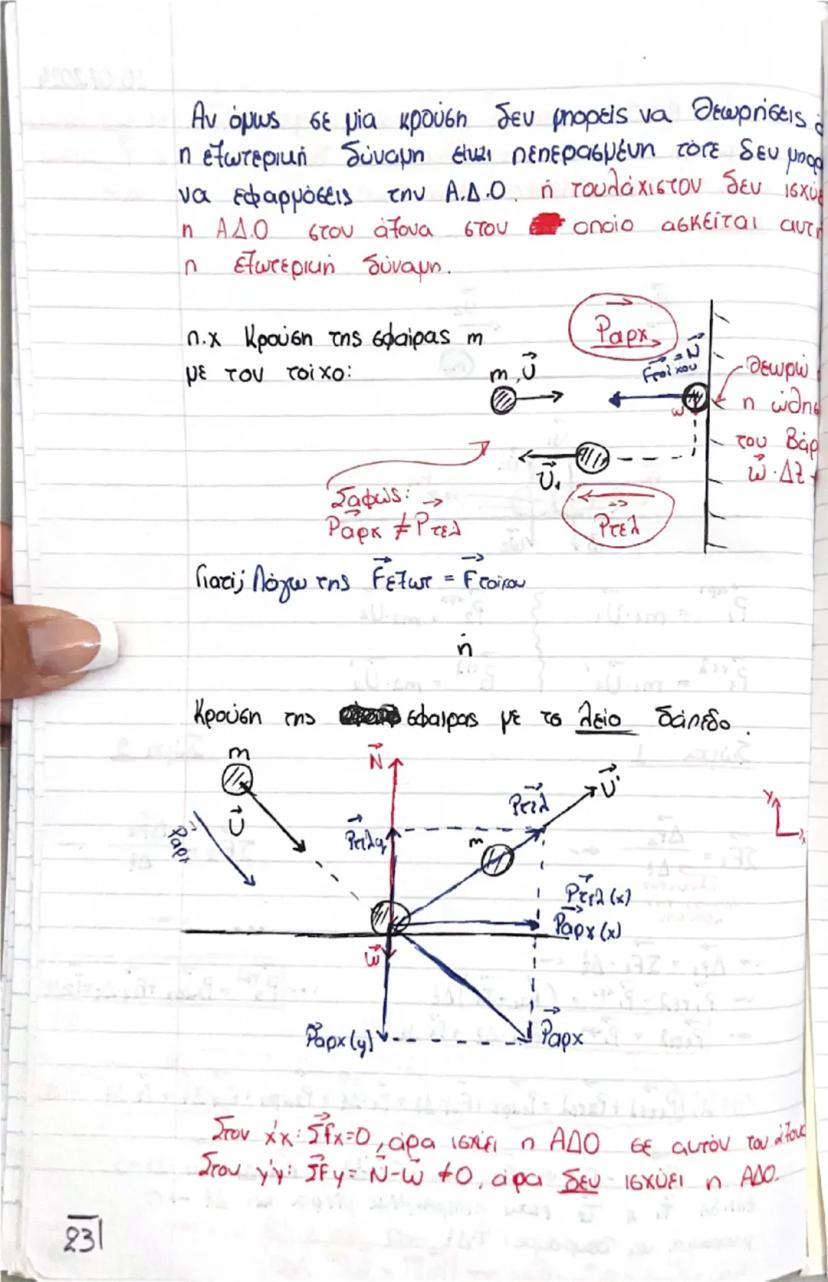 Αν όμως σε μία κρούση δεν μπορείς να θεωρήσεις
η εξωτερική δύναμη είναι πεπερασμένη τότε δεν μπορ
να εφαρμόσεις την Α.Δ.Ο. ή τουλάχιστον δεν ισχύε
η ΑΔΟ στον άξονα στον οποίο ασκείται αυτή
η εξωτερική δύναμη.
π.χ Κρούση της σφαίρας m
με τον τοίχο:
Pαρχ
m, υ
Fτοίχου = N
w
θεωρώ
η ώθησ
του βάρ
w·Δt
υ₁
Pτελ
Σαφώς:
Pαρχ ≠ Pτελ
Γιατί; Λόγω της Fεξωτ = Fτοίχου
ή
Κρούση της σφαίρας με το λείο δάπεδο.
m
υ
Pαρχ
N
Pτελy
m
Pτελ
υ'
y
x
Pτελ(x)
Pαρχ(x)
w
Pαρχ(y)
Pαρχ
Στον x'x: Σfx=0, άρα ισχύει η ΑΔΟ σε αυτόν τον άξονα
Στον y'y: Σfy= N-w ≠0, άρα δεν ισχύει η ΑΔΟ.
23